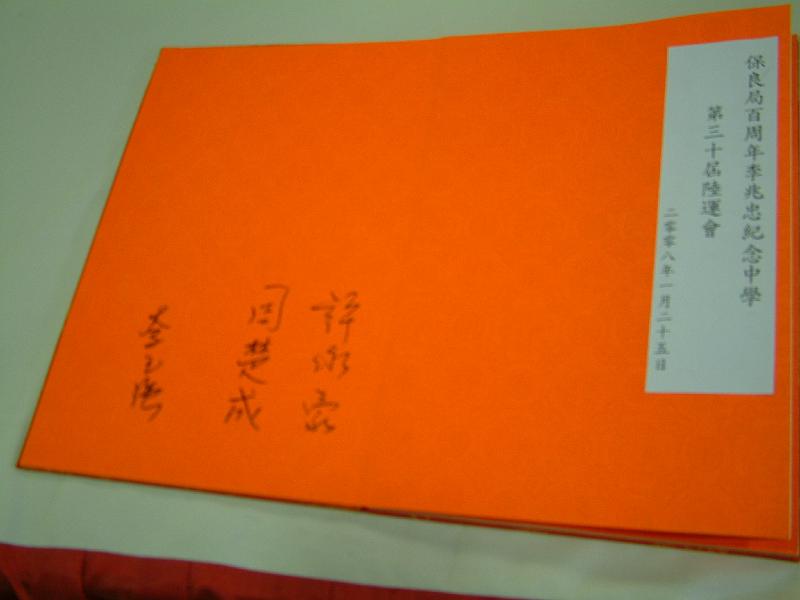 保良局百周年李兆忠紀念中學
第三十屆陸運會
二零零八年一月二十五日
周楚成